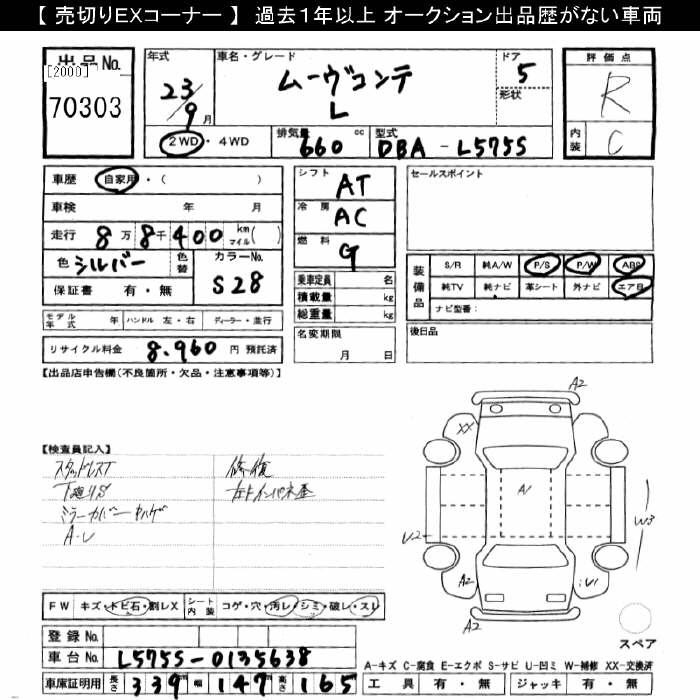 【 売切りEXコーナー 】 過去１年以上 オークション出品歴がない車両
出品No.
[2000]
70303
年式
23/9月
車名・グレード
ムーヴコンテ
L
ドア
5
形状
評価点
R
内装
C
2WD・4WD
排気量 660 cc
型式 DBA - L575S
車歴 自家用・( )
車検 年 月
走行 8万8千400 km マイル( )
色 シルバー 色替 カラーNo.
S28
保証書 有・無
シフト AT
冷房 AC
燃料 G
乗車定員 名
積載量 kg
総重量 kg
セールスポイント
装備品
S/R 純A/W P/S P/W ABS
純TV 純ナビ 革シート 外ナビ エアB
ナビ型番:
モデル年式 年 ハンドル 左・右 ディーラー・並行
リサイクル料金 8,960 円 預託済
名変期限
月 日
後日品
【出品店申告欄(不良箇所・欠品・注意事項等)】
【検査員記入】
スタッドレスT
下廻りS
ミラーカバーキハゲ
A・U
修復
A2
XX
A1
U2
W3
A2
U1
A2
FW キズ・トビ石・割レX シート内装 コゲ・穴・汚レ・シミ・破レ・スレ
登録No.
車台No. L575S-0135638
車庫証明用 長さ 339 幅 147 高さ 165
スペア
A-キズ C-腐食 E-エクボ S-サビ U-凹ミ W-補修 XX-交換済
工具 有・無 ジャッキ 有・無